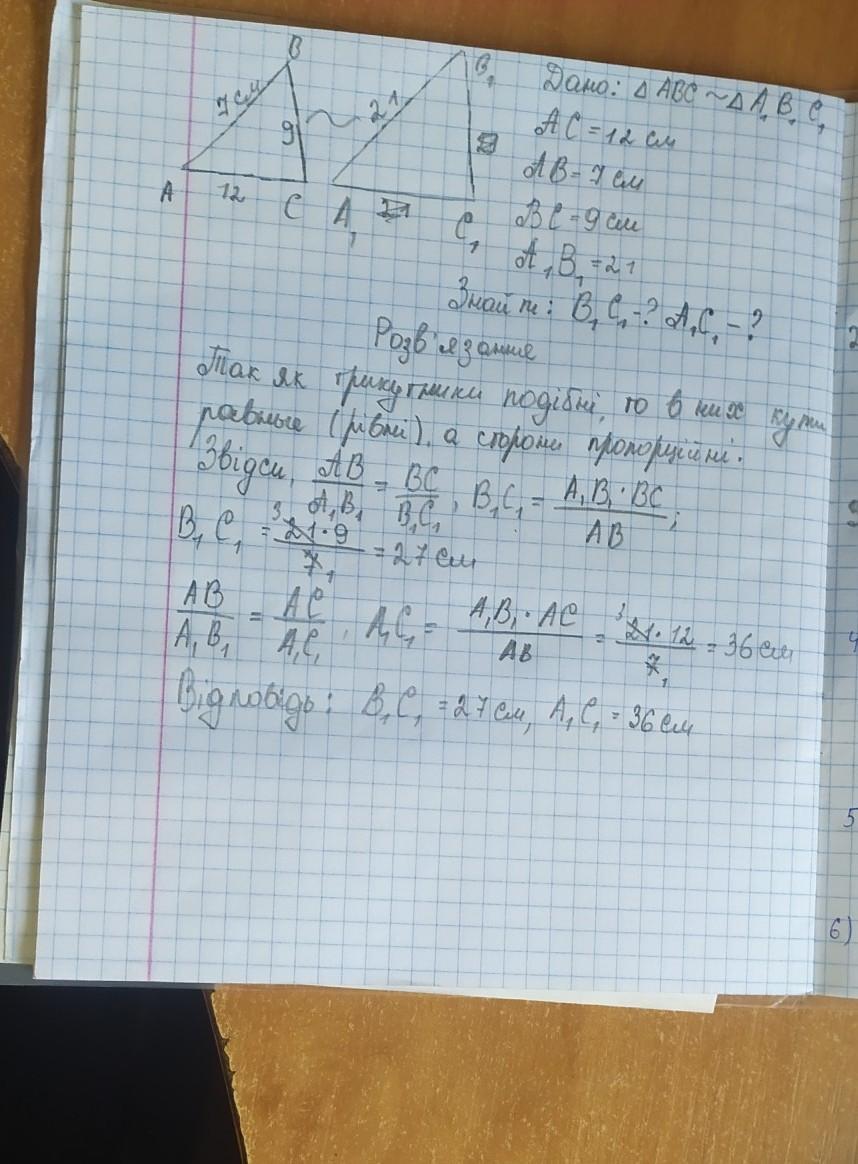 B
7 см
9
12
A
C
~
B₁
21
A₁
C₁
Дано: Δ ABC ~ Δ A₁ B₁ C₁
AC = 12 см
AB = 7 см
BC = 9 см
A₁B₁ = 21
Знайти: B₁C₁ - ? A₁C₁ - ?
Розв'язання
Так як трикутники подібні, то в них кути
равные (рівні), а сторони пропорційні.
Звідси, AB/A₁B₁ = BC/B₁C₁, B₁C₁ = A₁B₁·BC/AB;
B₁C₁ = ³21·9/7₁ = 27 см
AB/A₁B₁ = AC/A₁C₁, A₁C₁ = A₁B₁·AC/AB = ³21·12/7₁ = 36 см
Відповідь: B₁C₁ = 27 см, A₁C₁ = 36 см
2
4
5
6)